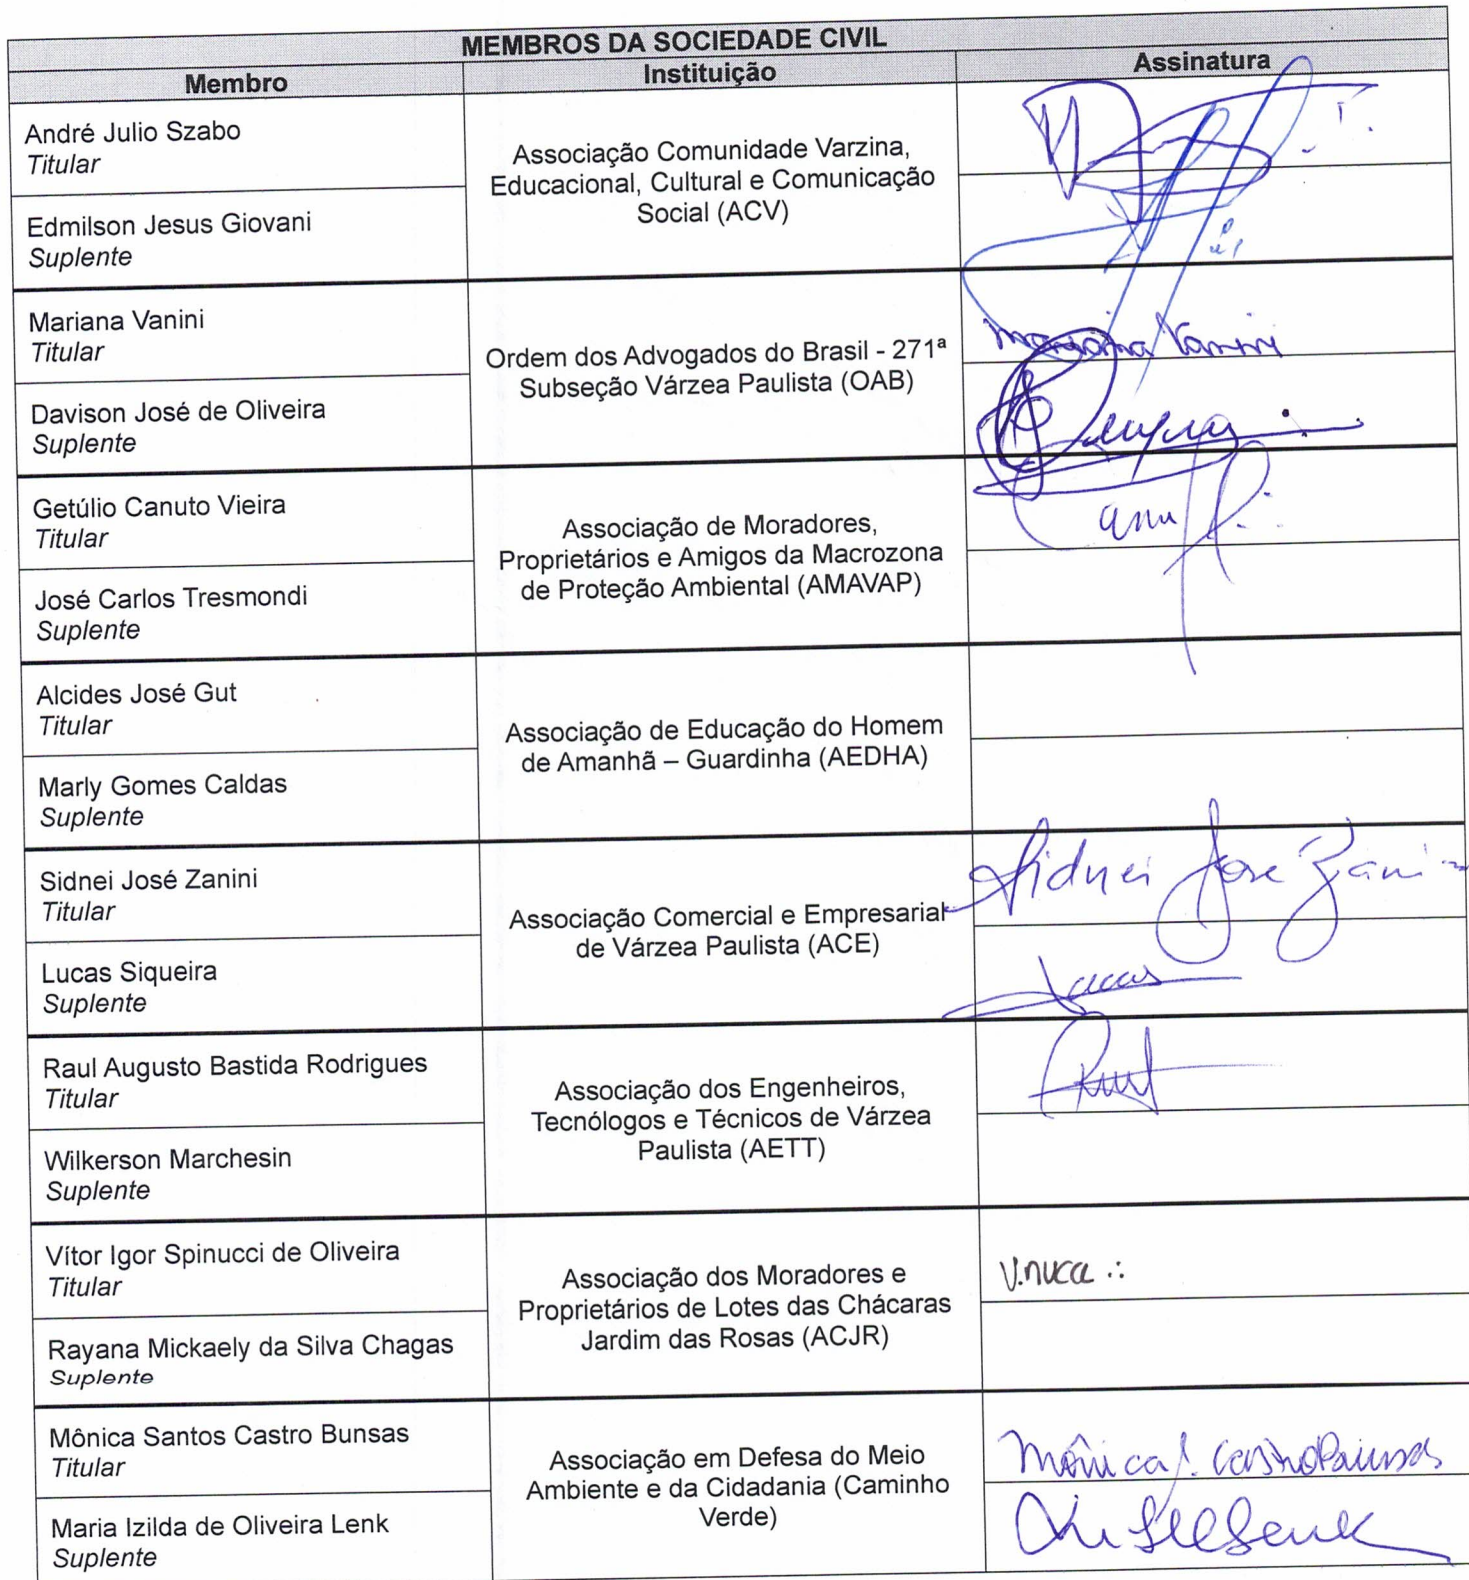 MEMBROS DA SOCIEDADE CIVIL
Membro Instituição Assinatura
André Julio Szabo
Titular
Associação Comunidade Varzina,
Educacional, Cultural e Comunicação
Social (ACV)
Edmilson Jesus Giovani
Suplente
Mariana Vanini
Titular
Ordem dos Advogados do Brasil - 271ª
Subseção Várzea Paulista (OAB)
Mariana Vanini
Davison José de Oliveira
Suplente
Getúlio Canuto Vieira
Titular
Associação de Moradores,
Proprietários e Amigos da Macrozona
de Proteção Ambiental (AMAVAP)
José Carlos Tresmondi
Suplente
Alcides José Gut
Titular
Associação de Educação do Homem
de Amanhã – Guardinha (AEDHA)
Marly Gomes Caldas
Suplente
Sidnei José Zanini
Titular
Associação Comercial e Empresarial
de Várzea Paulista (ACE)
Sidnei José Zanini
Lucas Siqueira
Suplente
Lucas
Raul Augusto Bastida Rodrigues
Titular
Associação dos Engenheiros,
Tecnólogos e Técnicos de Várzea
Paulista (AETT)
Wilkerson Marchesin
Suplente
Vítor Igor Spinucci de Oliveira
Titular
Associação dos Moradores e
Proprietários de Lotes das Chácaras
Jardim das Rosas (ACJR)
Rayana Mickaely da Silva Chagas
Suplente
Mônica Santos Castro Bunsas
Titular
Associação em Defesa do Meio
Ambiente e da Cidadania (Caminho
Verde)
Mônica S. Castro Bunsas
Maria Izilda de Oliveira Lenk
Suplente